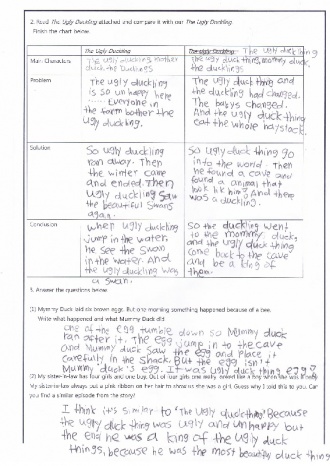 2. Read The Ugly Duckling attached and compare it with our The Ugly Duckling.
Finish the chart below.
The Ugly Duckling
The Ugly Duckling The ugly duckling
Main Characters
The ugly duckling, mother
duck the Ducklings
The ugly duck thing, mommy duck,
the ducklings
Problem
The ugly duckling
is so unhappy here
...... Everyone in
the farm bother the
ugly duckling.
The ugly duck thing and
the duckling had changed.
The babys changed.
And the ugly duck thing
eat the whole haystack.
Solution
So ugly duckling
ran away. Then
the winter came
and ended. Then
ugly duckling saw
the beautiful swans
again.
So ugly duck thing go
into the world. Then
he found a cave and
found a animal that
look lik him? And there
was a duckling.
Conclusion
When ugly duckling
jump in the water.
he see the swan
in the water. And
the ugly duckling was
a swan.
So the duckling went
to the mommy duck,
and the ugly duck thing
come back to the cave
and be a king of
them.
3. Answer the questions below.
(1) Mummy Duck laid six brown eggs. But one morning something happened because of a bee.
Write what happened and what Mummy Duck did!
one of the egg tumble down so Mummy duck
ran after it. The egg jump in to the cave
and Mummy duck saw the egg and place it
carefully in the snack. But the egg isn't
Mummy duck's egg. It was ugly duck thing egg?
(2) My sister-in-law has four girls and one boy. Out of four girls one really looked like a boy when she was a baby.
My sister-in-law always put a pink ribbon on her hair to show us she was a girl. Guess why I said this to you. Can
you find a similar episode from the story?
I think it's similar to 'The Ugly duck thing' Because
the ugly duck thing was ugly and unhappy but
the end he was a king of the ugly duck
things, because he was the most beautiful duck thing